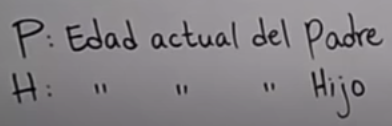 P: Edad actual del Padre
H: " " " Hijo